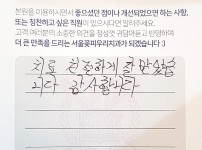 본원을 이용하시면서 좋으셨던 점이나 개선되었으면 하는 사항,
또는 칭찬하고 싶은 직원이 있으시다면 말려주세요.
고객 여러분의 소중한 의견을 정성껏 귀담아듣고 반영하여
더 큰 만족을 드리는 서울꽃피우리치과가 되겠습니다 :)
치료 친절하게 잘 받았습
니다 감사합니다